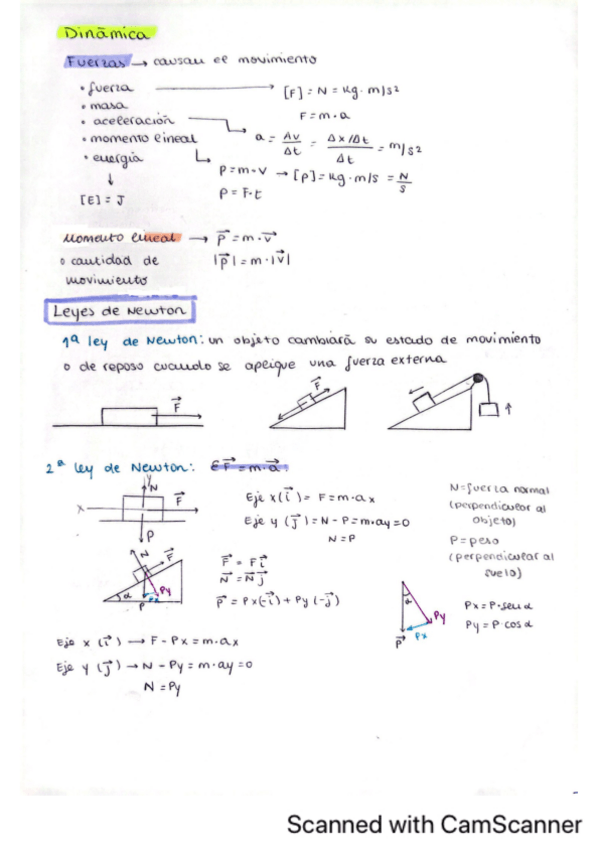 Dinámica
Fuerzas → causan el movimiento
• fuerza → [F] = N = kg · m/s²
• masa F = m · a
• aceleración → a = Δv/Δt = (Δx/Δt)/Δt = m/s²
• momento lineal → p = m · v → [p] = kg · m/s = N/S
• energía p = F · t
↓
[E] = J
Momento lineal → p⃗ = m · v⃗
o cantidad de |p⃗| = m · |v⃗|
movimiento
Leyes de Newton
1ª ley de Newton: un objeto cambiará su estado de movimiento
o de reposo cuando se aplique una fuerza externa
F⃗
F⃗
2ª ley de Newton: ΣF⃗ = m · a⃗
N
F⃗
x
P
Eje x (i⃗) = F = m · ax
Eje y (j⃗) = N - P = m · ay = 0
N = P
N = fuerza normal
(perpendicular al
objeto)
P = peso
(perpendicular al
suelo)
N
F
α
P
Px
Py
F⃗ = F i⃗
N⃗ = N j⃗
P⃗ = Px(-i⃗) + Py(-j⃗)
α
Py
Px
P⃗
Px = P · sen α
Py = P · cos α
Eje x (i⃗) → F - Px = m · ax
Eje y (j⃗) → N - Py = m · ay = 0
N = Py
Scanned with CamScanner